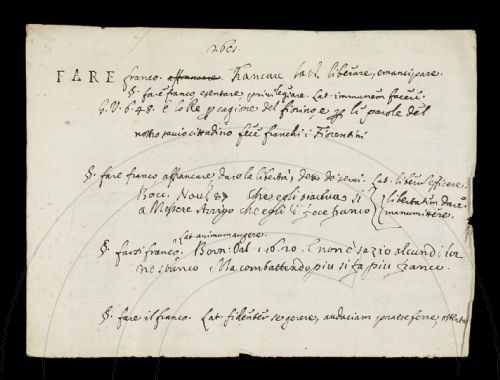 FARE franco. affrancare. Francare lat. liberare, emancipare.
§. fare franco esentare, privilegiare. Lat. immunem facere.
G. V. 6. 48. E lo Re p cagione del fiorino, e li parole del
nostro savio cittadino fece franchi i Fiorentini
§. fare franco affrancare dare la libertà, detto de' servi. Lat. liberū efficere.
Bocc. Nov. Che egli piaceva si libertatem dare
a Messere Arrigo che egli il fece franco manumittere.
Lat. animum augere.
§. farsi franco. Born. Sal. 1. 16. 20. E non è sazio alcun di lor
ne stanco, Ma combattendo piu si fa piu franco.
§. fare il franco. Lat. fidenter se gerere, audaciam praeseferre,